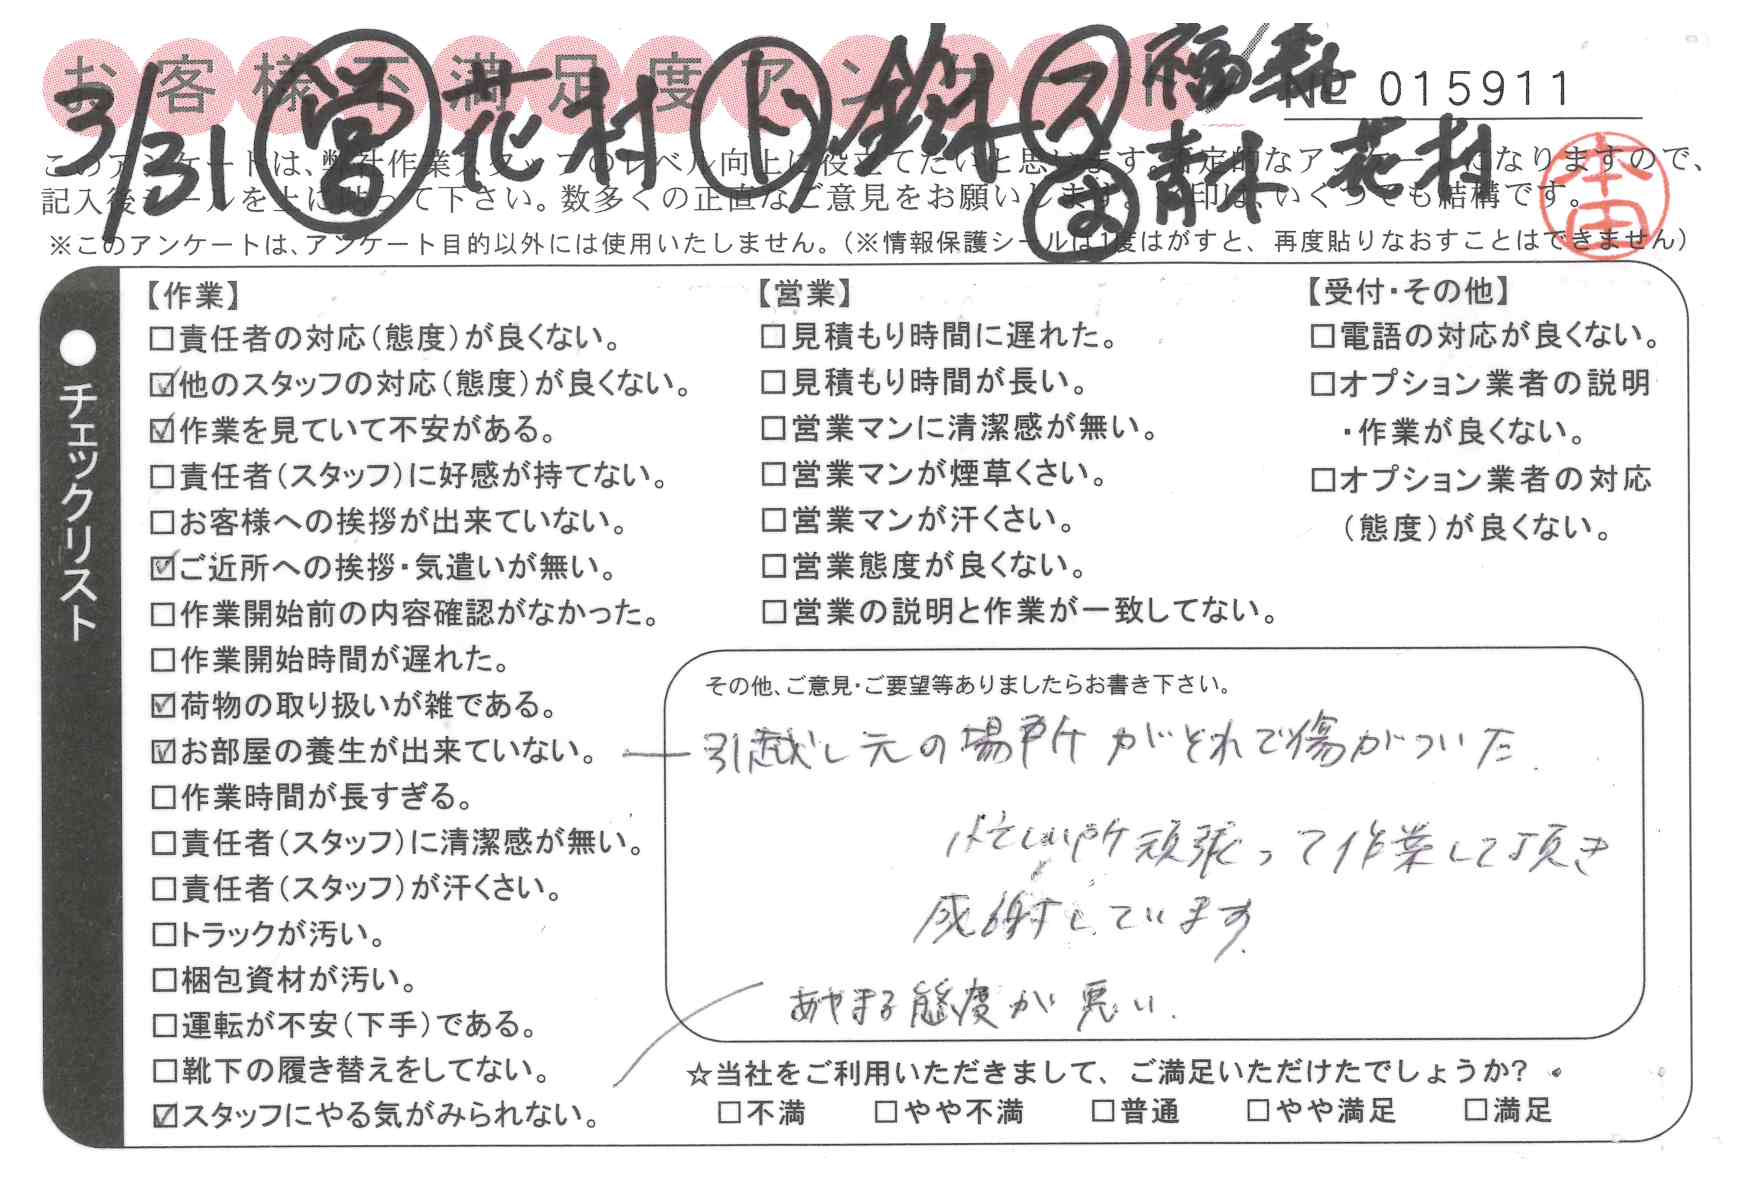 お客様不満足度アンケート
3/31 営 花村 ト 鈴木 ス 福寿
№ 015911
な 青木 花村
本田
このアンケートは、弊社作業スタッフのレベル向上に役立てたいと思います。否定的なアンケートになりますので、
記入後シールを上に貼って下さい。数多くの正直なご意見をお願いします。✓印は、いくつでも結構です。
※このアンケートは、アンケート目的以外には使用いたしません。（※情報保護シールは1度はがすと、再度貼りなおすことはできません）
●チェックリスト
【作業】
□責任者の対応（態度）が良くない。
☑他のスタッフの対応（態度）が良くない。
☑作業を見ていて不安がある。
□責任者（スタッフ）に好感が持てない。
□お客様への挨拶が出来ていない。
☑ご近所への挨拶・気遣いが無い。
□作業開始前の内容確認がなかった。
□作業開始時間が遅れた。
☑荷物の取り扱いが雑である。
☑お部屋の養生が出来ていない。
□作業時間が長すぎる。
□責任者（スタッフ）に清潔感が無い。
□責任者（スタッフ）が汗くさい。
□トラックが汚い。
□梱包資材が汚い。
□運転が不安（下手）である。
□靴下の履き替えをしてない。
☑スタッフにやる気がみられない。
【営業】
□見積もり時間に遅れた。
□見積もり時間が長い。
□営業マンに清潔感が無い。
□営業マンが煙草くさい。
□営業マンが汗くさい。
□営業態度が良くない。
□営業の説明と作業が一致してない。
【受付・その他】
□電語の対応が良くない。
□オプション業者の説明
・作業が良くない。
□オプション業者の対応
（態度）が良くない。
その他、ご意見・ご要望等ありましたらお書き下さい。
引越し元の場所がそれで傷がついた.
忙しい所頑張って作業して頂き
感謝しています
あやまる態度が悪い.
☆当社をご利用いただきまして、ご満足いただけたでしょうか？
□不満 □やや不満 □普通 □やや満足 □満足